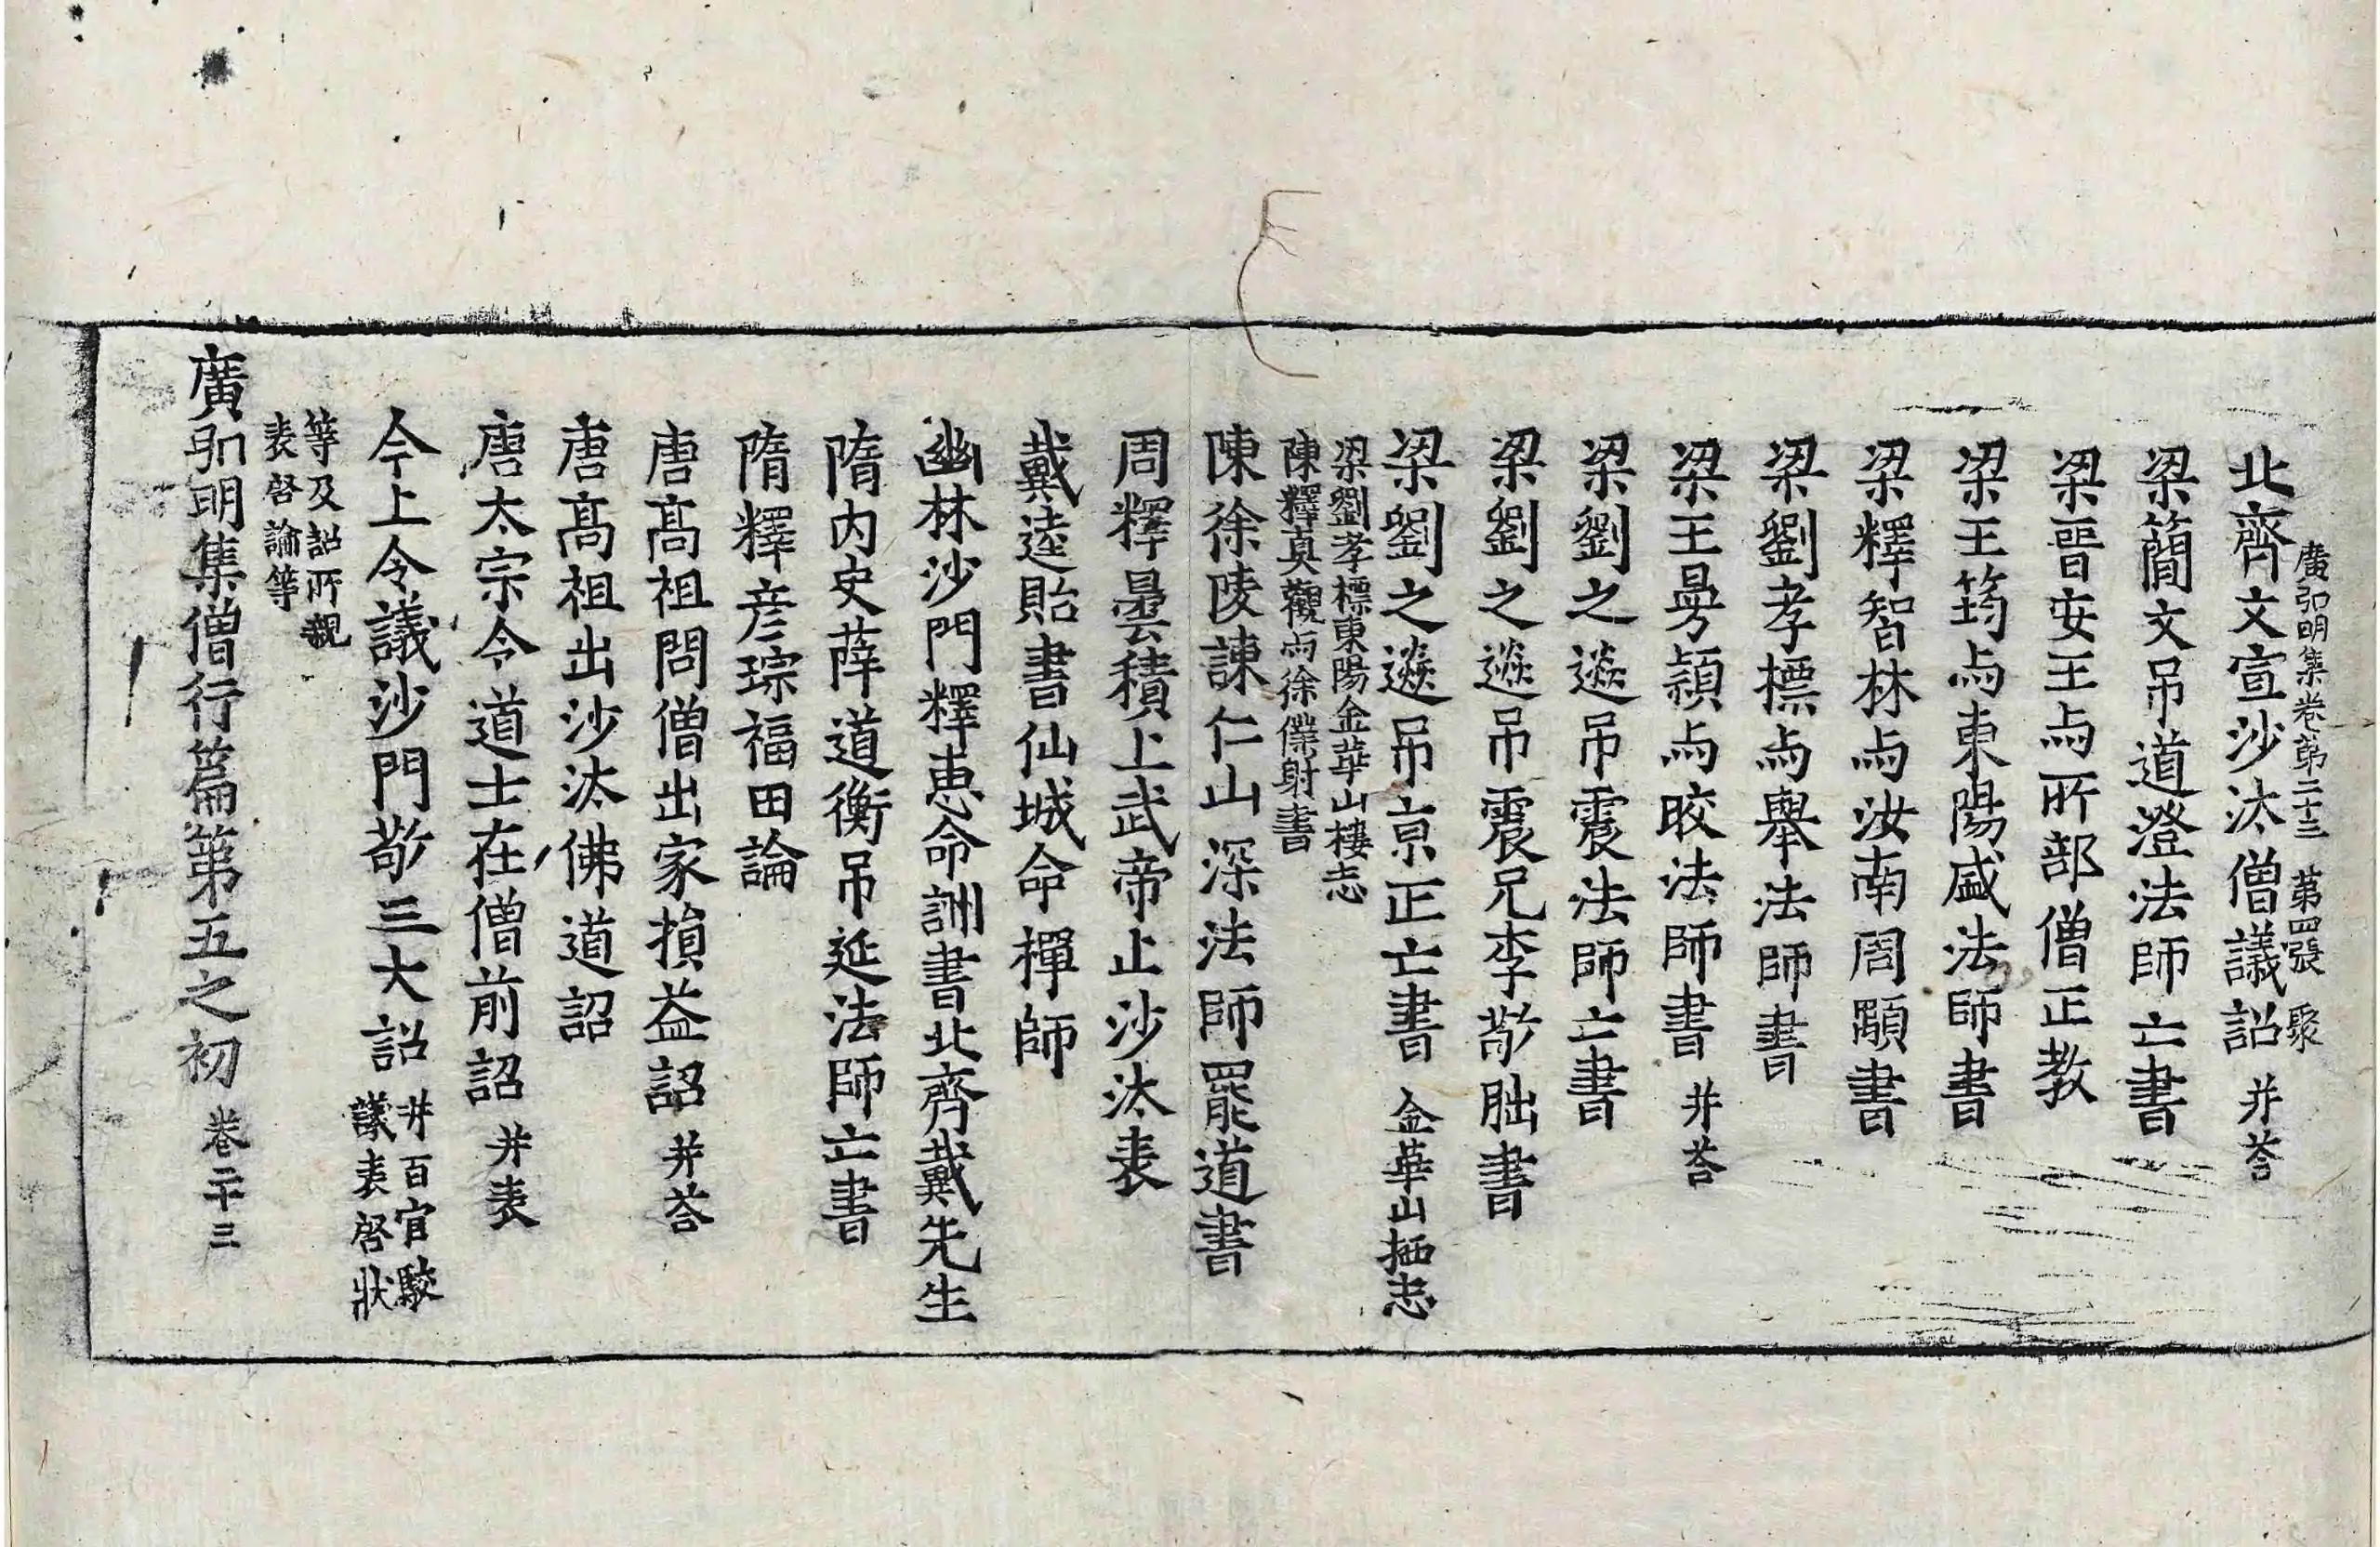 廣弘明集卷第二十三 第四張 聚
北齊文宣沙汰僧議詔 并荅
梁簡文吊道澄法師亡書
梁晉安王与所部僧正教
梁王筠与東陽盛法師書
梁釋智林与汝南周顒書
梁劉孝標与舉法師書
梁王曼穎与皎法師書 并荅
梁劉之遴吊震法師亡書
梁劉之遴吊震兄李敬朏書
梁劉之遴吊京正亡書 金華山栖志
梁劉孝標東陽金華山棲志
陳釋真觀与徐僕射書
陳徐陵諫仁山深法師罷道書
周釋曇積上武帝止沙汰表
戴逵貽書仙城命禪師
幽林沙門釋惠命詶書北齊戴先生
隋內史薛道衡吊延法師亡書
隋釋彦琮福田論
唐髙祖問僧出家損益詔 并荅
唐髙祖出沙汰佛道詔
唐太宗令道士在僧前詔 并表
今上令議沙門敬三大詔 并百官駮
議表啓狀
等及詔所親
表啓論等
廣弘明集僧行篇第五之初 卷二十三